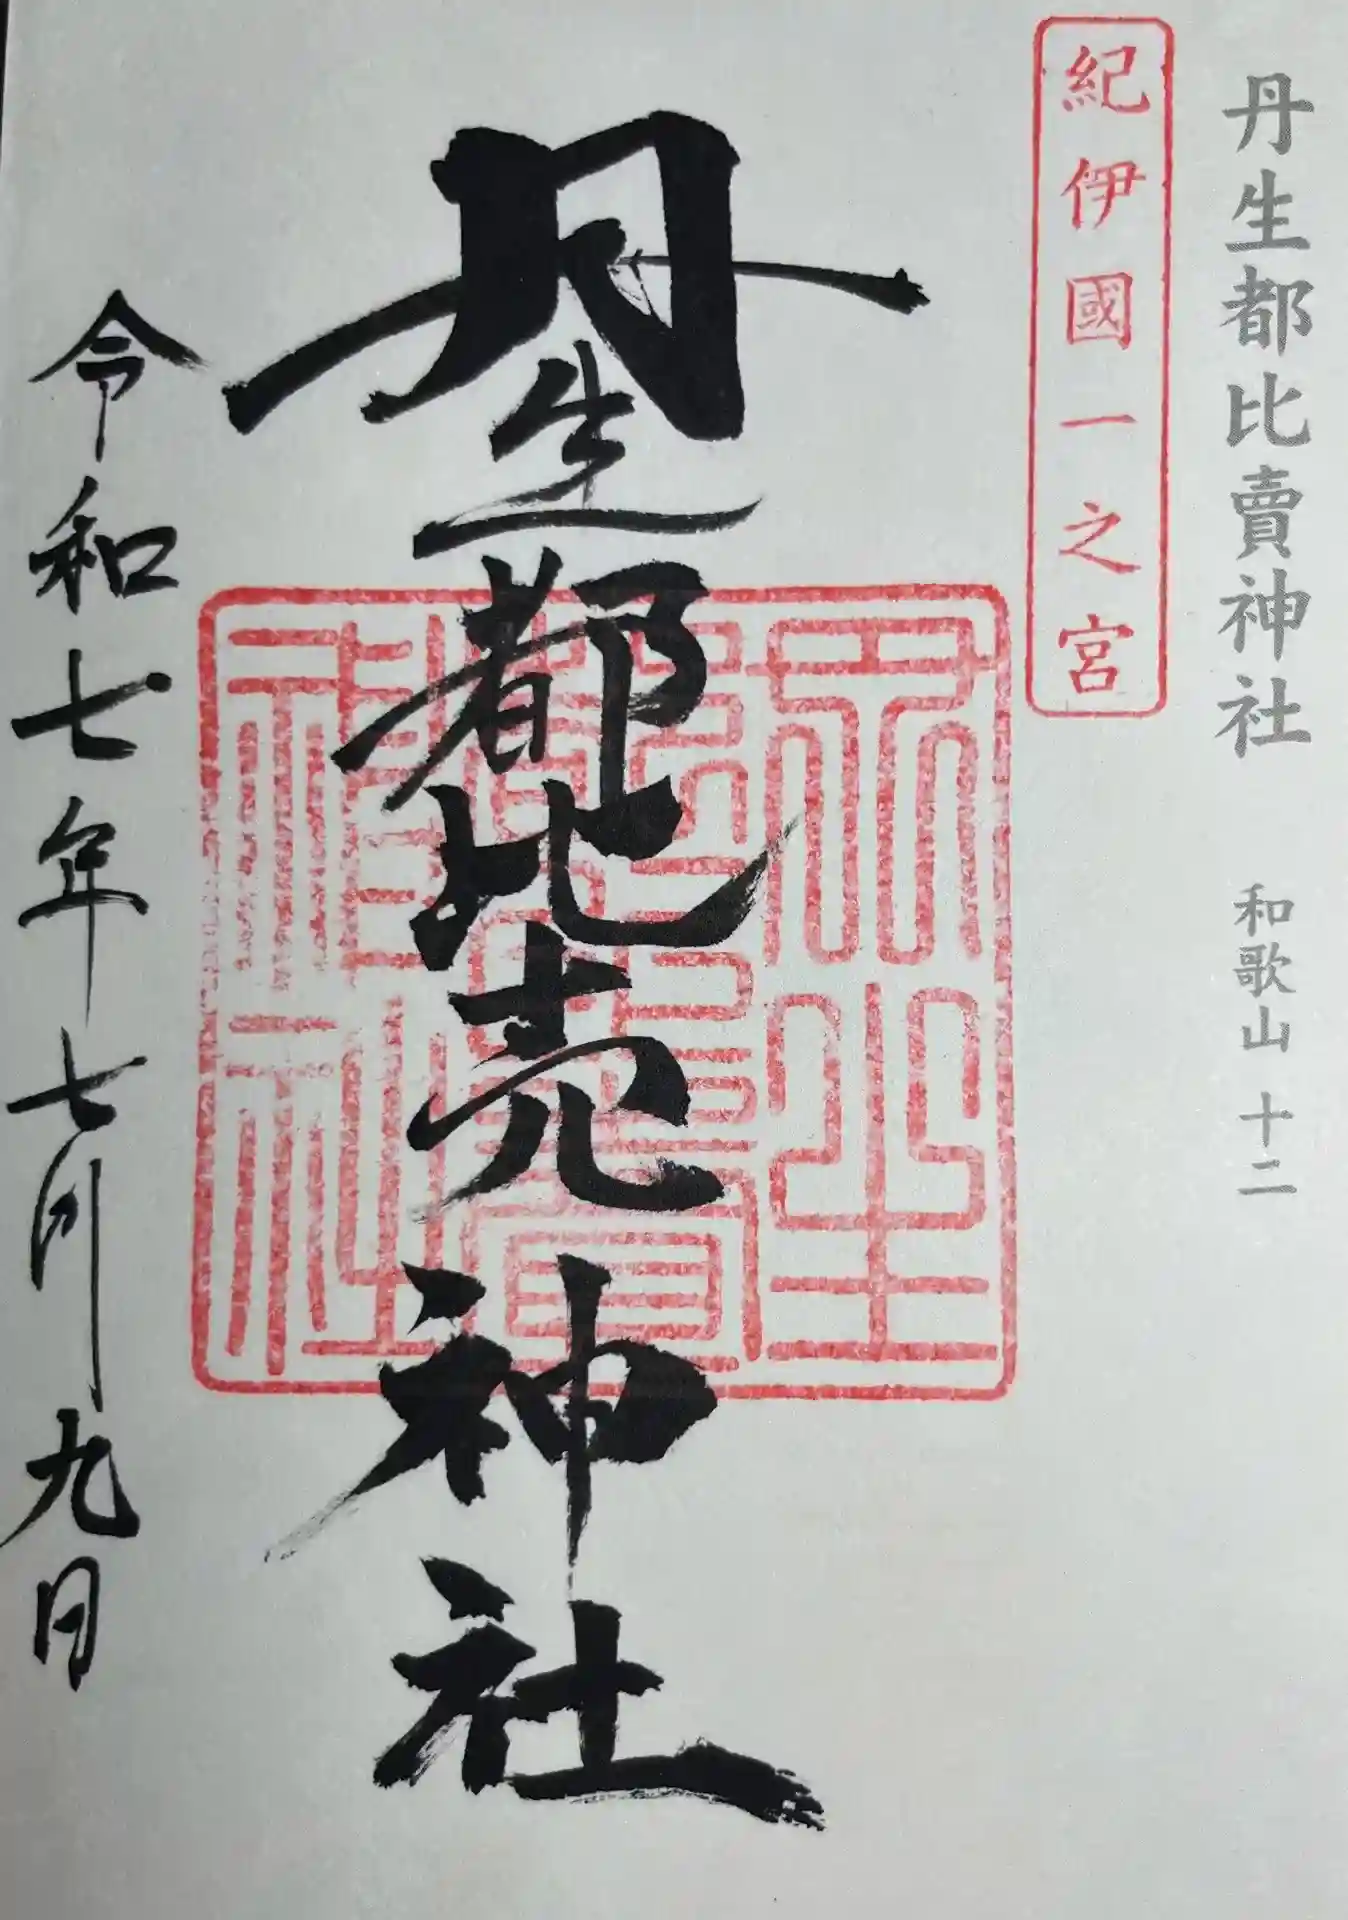 丹生都比賣神社 和歌山 十二
紀伊國一之宮
丹生都比売神社
丹生都比賣神社
令和七年七月九日